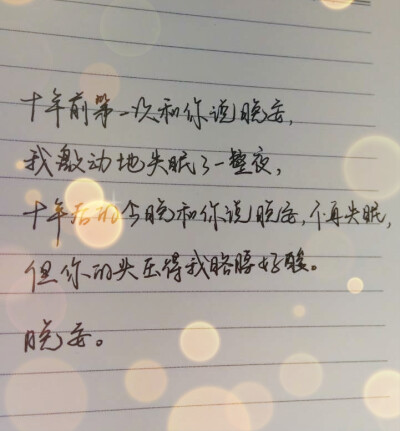 十年前第一次和你说晚安，
我激动地失眠了一整夜，
十年后的今晚和你说晚安，不再失眠，
但你的头压得我胳膊好酸。
晚安。